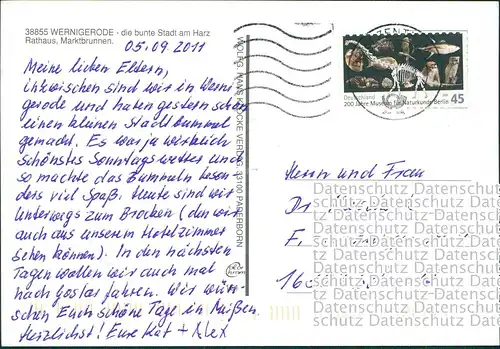 38855 WERNIGERODE - die bunte Stadt am Harz
Rathaus, Marktbrunnen.
05.09.2011
Meine lieben Eltern,
inzwischen sind wir in Werni
gerode und haben gestern schon
einen kleinen Stadtbummel
gemacht. Es war ja wirklich
schönstes Sonntagswetter und
so machte das Bummeln beson-
ders viel Spaß. Heute sind wir
unterwegs zum Brocken (den wir
auch aus unserem Hotelzimmer
sehen können). In den nächsten
Tagen wollen wir auch mal
nach Goslar fahren. Wir wün-
schen Euch schöne Tage in Meißen.
Herzlichst! Eure Kat + Alex
VERLAG 33100 PADERBORN
Deutschland
200 Jahre Museum für Naturkunde Berlin
45
Herrn und Frau
Datenschutz Datenschutz
Datenschutz Datenschutz Daten
schutz Datenschutz Datenschutz
Datenschutz Datenschutz Daten
schutz Datenschutz Datenschutz
Datenschutz Datenschutz Daten
schutz Datenschutz Datenschutz
Datenschutz Datenschutz Daten
schutz Datenschutz Datenschutz